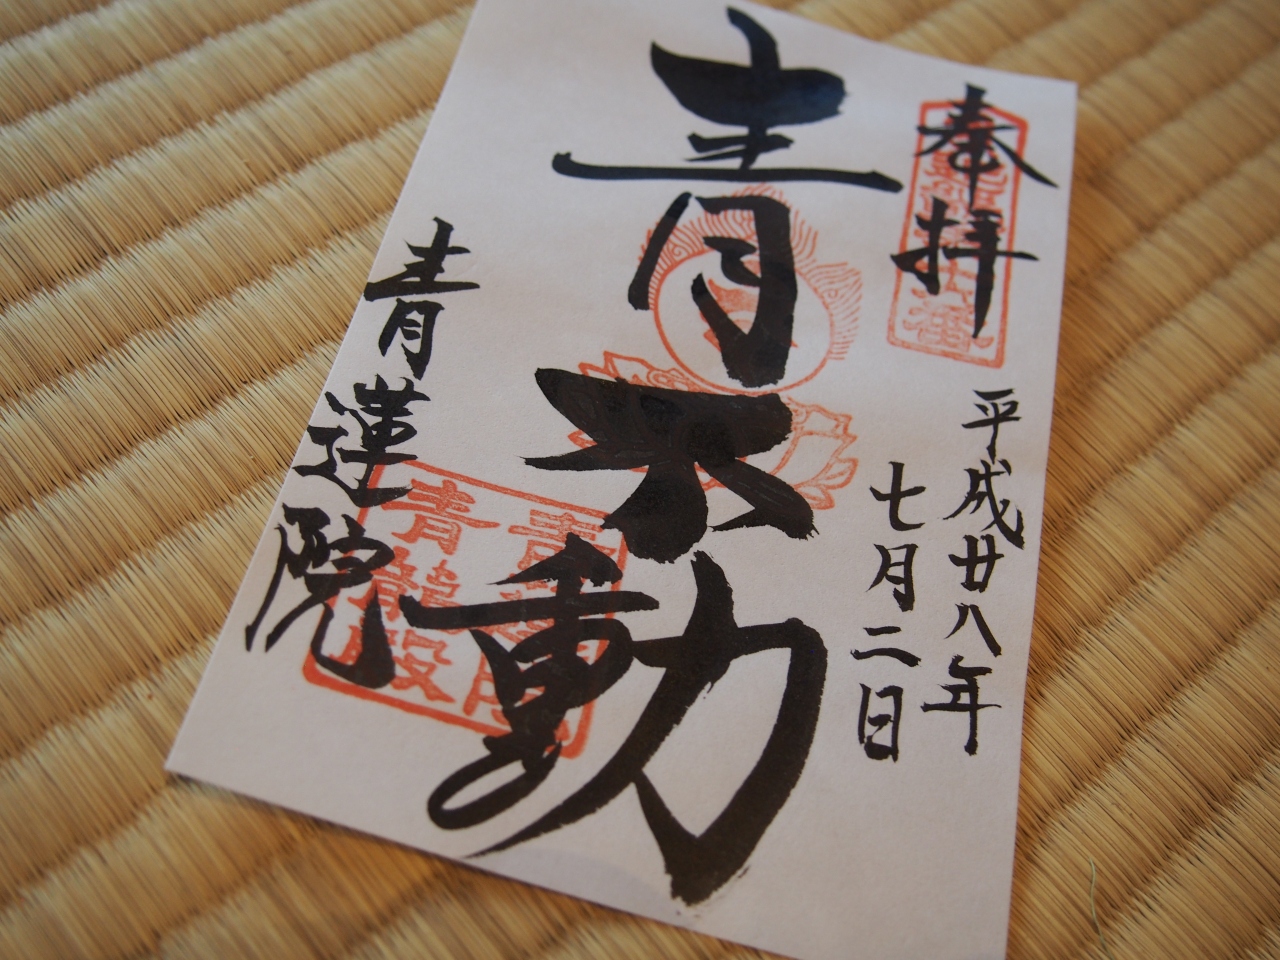 奉拝
平成廿八年
七月二日
青不動
青蓮院
青蓮院
青龍殿